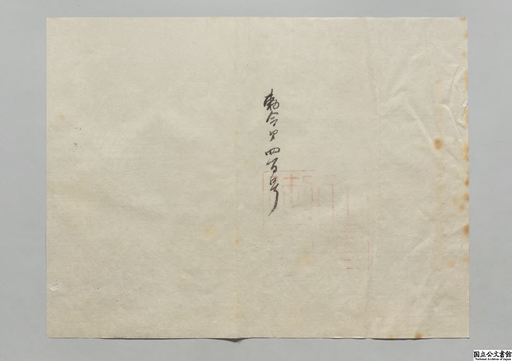 勅令第四百号
国立公文書館
National Archives of Japan